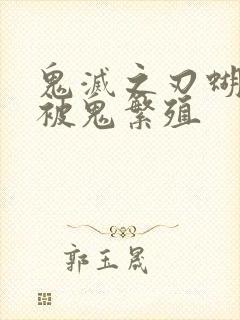 鬼滅之刃蝴
被鬼繁殖
郭玉晟